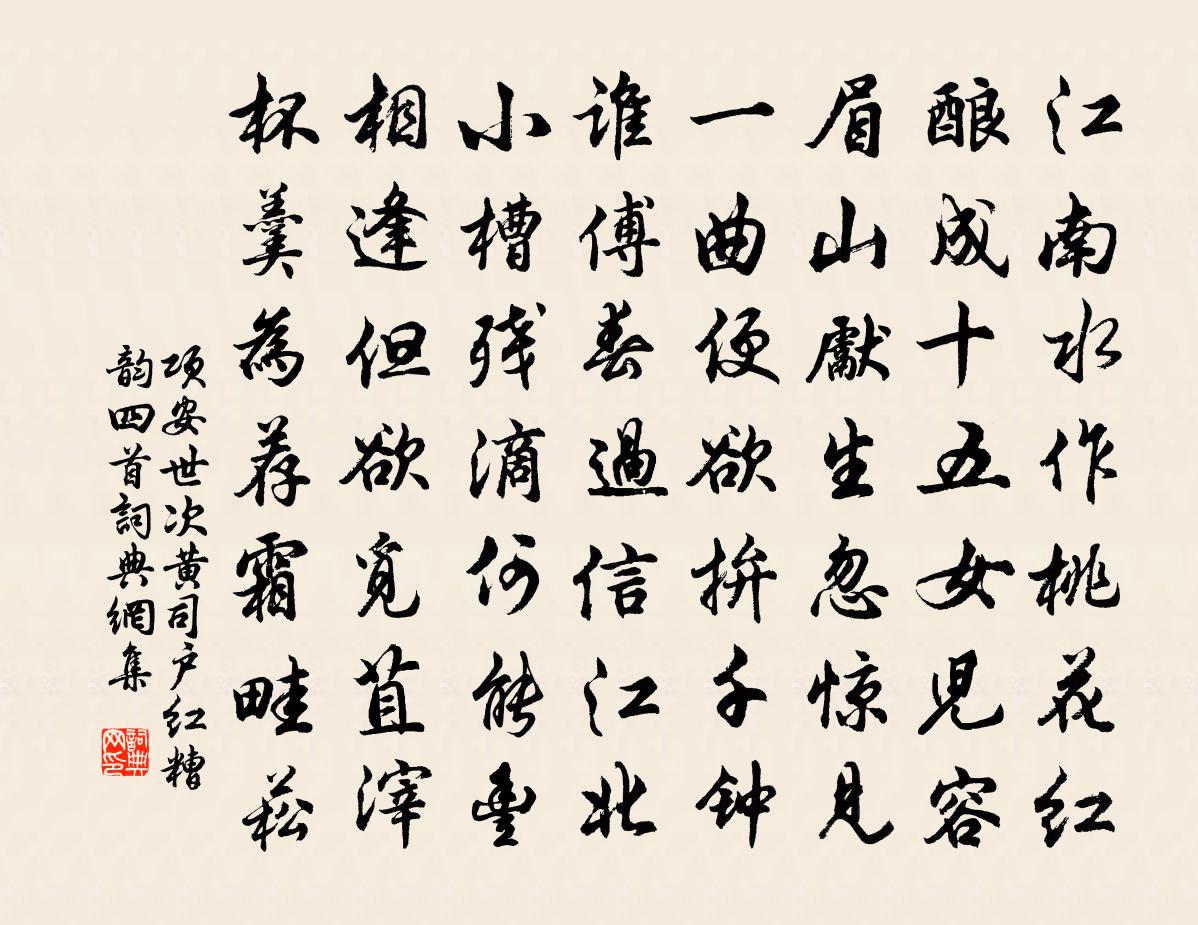 江南水作桃花红
酿成十五女児容
眉山獻生忽惊见
一曲便欲拚千钟
谁傅春過信江北
小槽残滴何能豊
相逢但欲觅苴滓
杯羹為荐霜畦菘
项安世次黄司户红糟
韵四首詞典網集
詞典
网印